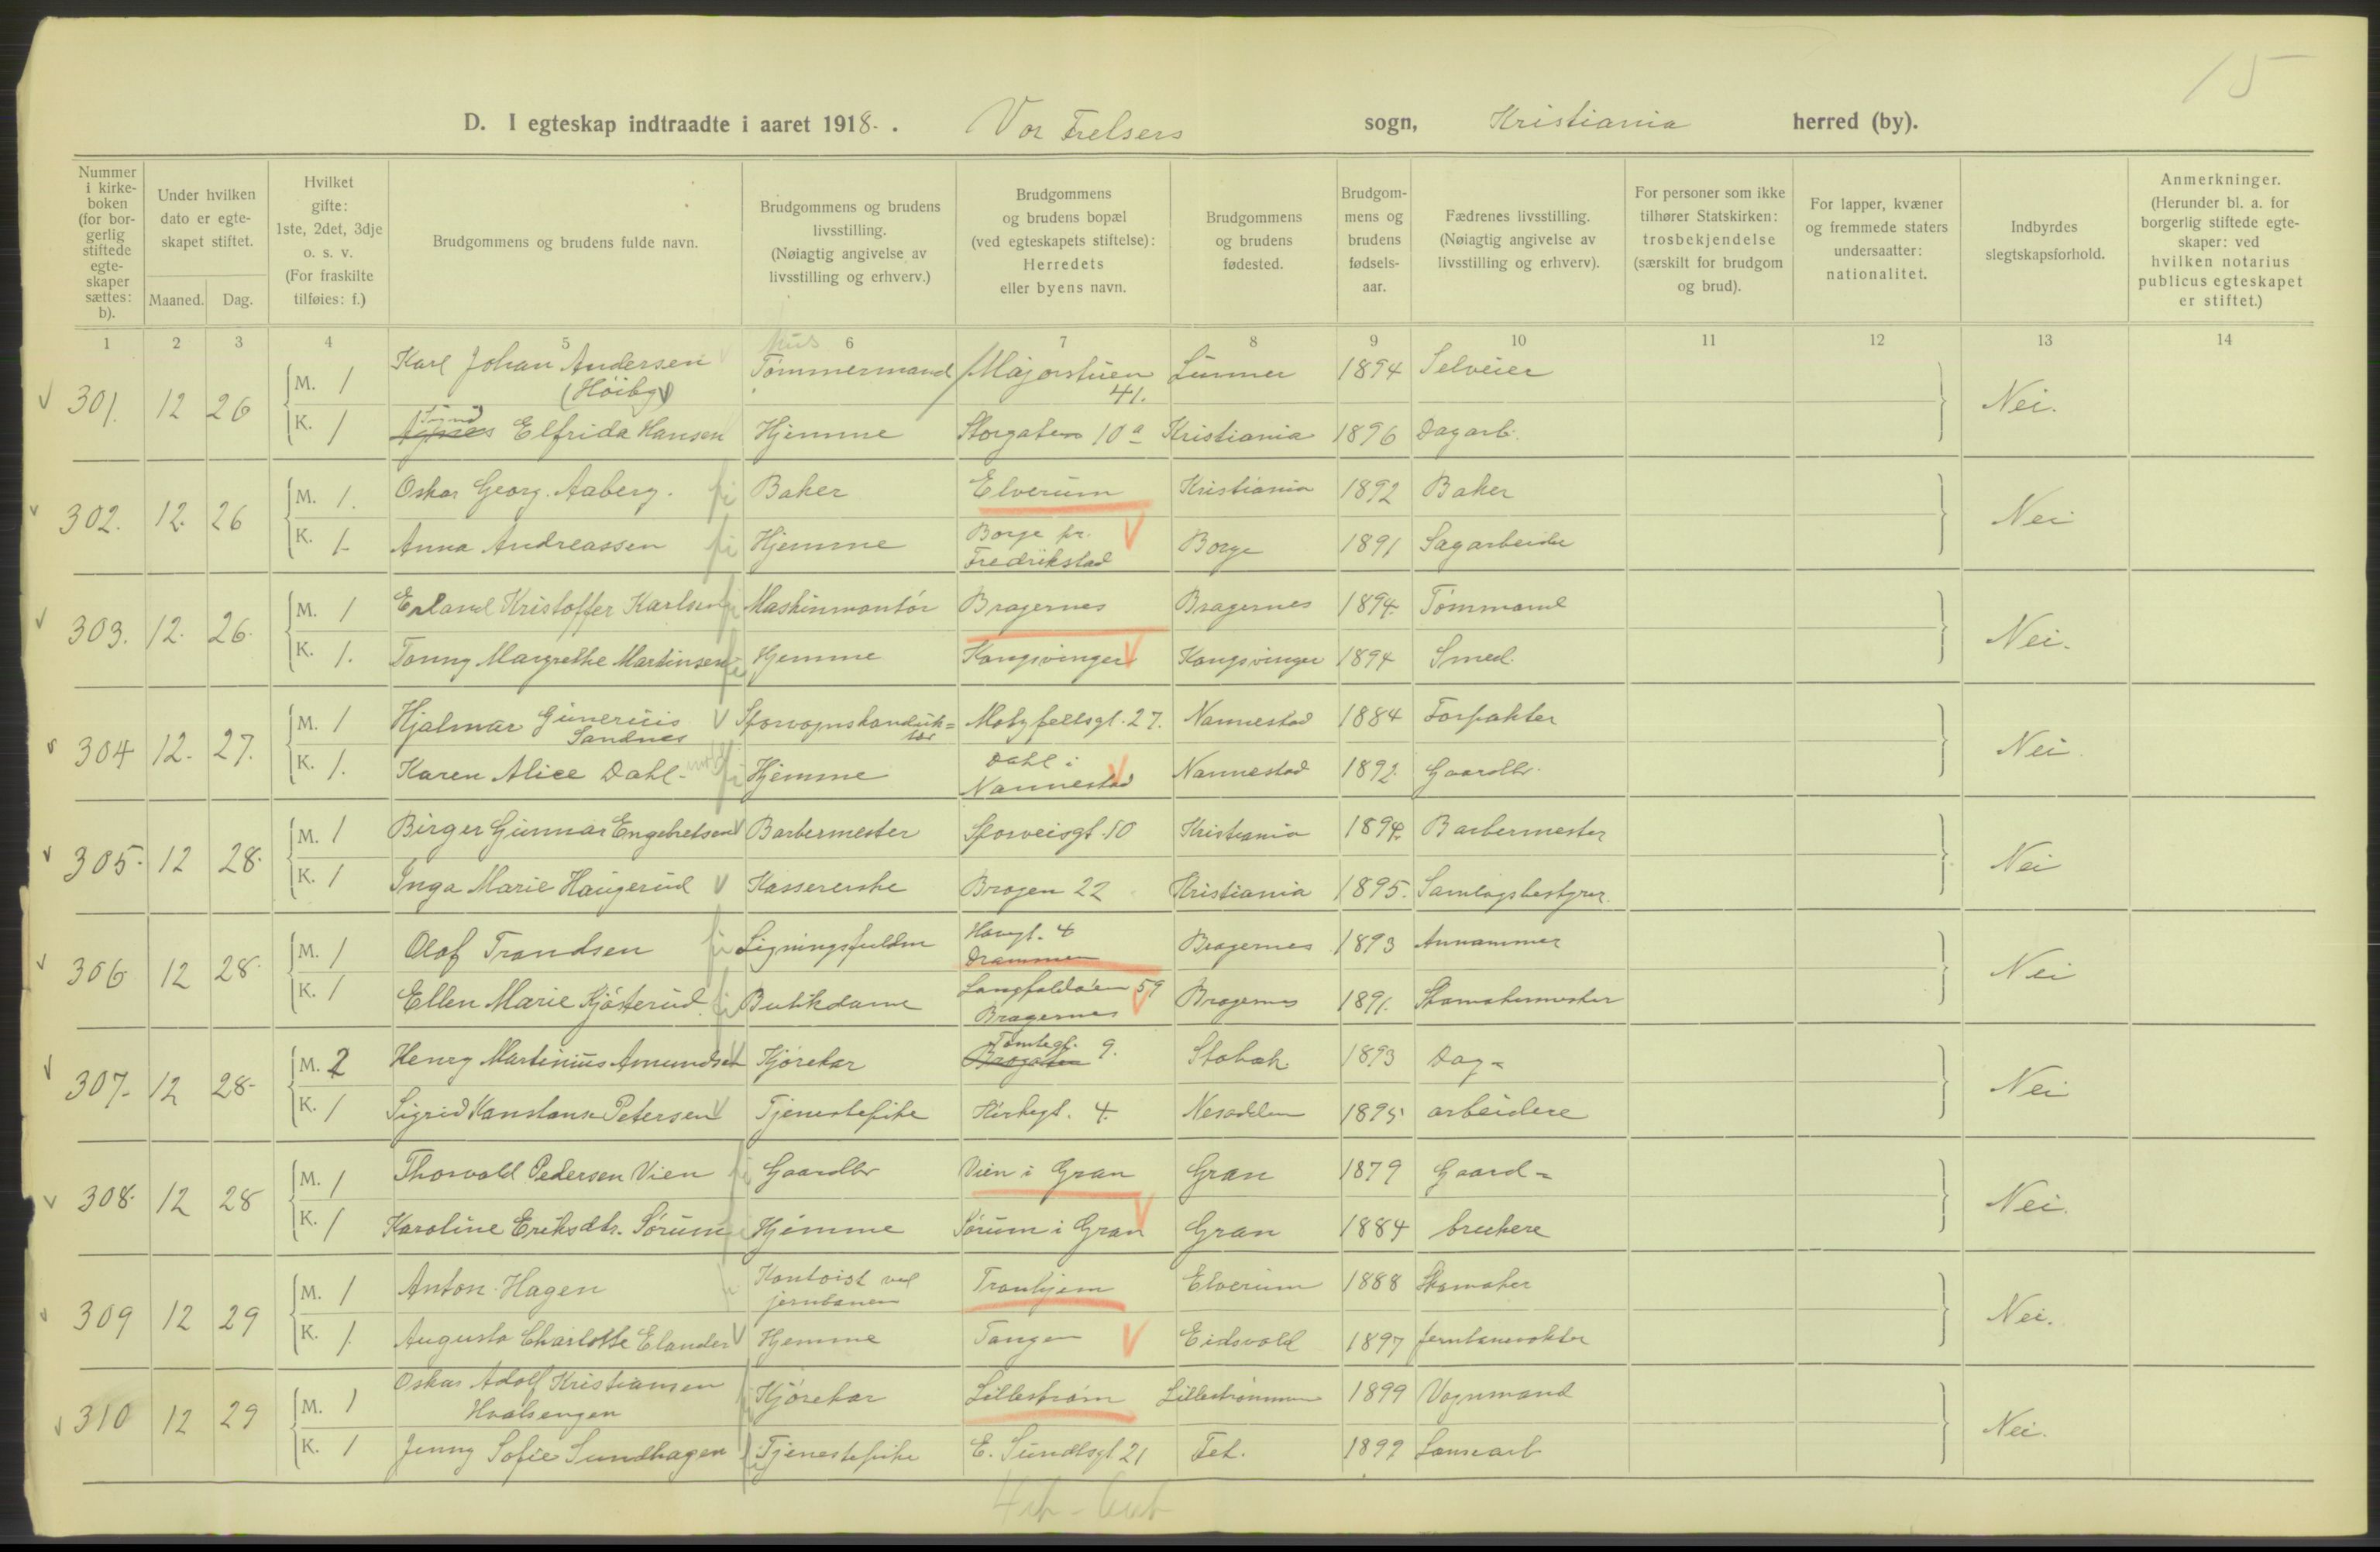 15
D. I egteskap indtraadte i aaret 1918. . Vor Frelsers sogn, Kristiania herred (by).
Nummer i kirke-boken (for bor-gerlig stiftede egte-skaper sættes: b).
Under hvilken dato er egte-skapet stiftet.
Maaned. Dag.
Hvilket gifte: 1ste, 2det, 3dje o. s. v. (For fraskilte tilføies: f.)
Brudgommens og brudens fulde navn.
Brudgommens og brudens livsstilling. (Nøiagtig angivelse av livsstilling og erhverv.)
Brudgommens og brudens bopæl (ved egteskapets stiftelse): Herredets eller byens navn.
Brudgommens og brudens fødested.
Brudgom-mens og brudens fødsels-aar.
Fædrenes livsstilling. (Nøiagtig angivelse av livsstilling og erhverv).
For personer som ikke tilhører Statskirken: trosbekjendelse (særskilt for brudgom og brud).
For lapper, kvæner og fremmede staters undersaatter: nationalitet.
Indbyrdes slegtskapsforhold.
Anmerkninger. (Herunder bl. a. for borgerlig stiftede egte-skaper: ved hvilken notarius publicus egteskapet er stiftet.)
1 2 3 4 5 6 7 8 9 10 11 12 13 14
301. 12 26 M. 1 Karl Johan Andersen (Höiby) Tömmermand Majorstuen 41. Lunner 1894 Selveier Nei.
K. 1 Elfrida Hansen Hjemme Storgaten 10a Kristiania 1896 Dagarb.
302. 12. 26 M. 1. Oskar Georg. Aaberg. Baker Elverum Kristiania 1892 Baker Nei
K. 1 Anna Andreassen Hjemme Borge pr. Fredrikstad Borge 1891 Sagarbeider
303. 12. 26. M. 1 Erland Kristoffer Karlsen Maskinmontör Bragernes Bragernes 1894. Tömmand Nei.
K. 1. Tonny Margrethe Martinsen Hjemme Kongsvinger Kongsvinger 1894 Smed.
304 12. 27. M. 1 Hjalmar Gunerius Sandnes Sporvognskonduk=tör 27. Nannestad 1884 Forpakter Nei
K. 1. Karen Alice Dahl Hjemme Dahl i Nannestad Nannestad 1892. Gaardbr.
305. 12 28. M. 1 Birger Gunnar Engebretsen Barbermester Sporveisgt. 10 Kristiania 1894. Barbermester Nei
K. 1 Inga Marie Haugerud Kassererske Brogen 22 Kristiania 1895. Samlagsbestyrer.
306 12 28. M. 1 Olaf Trandsen Ligningsfuldm Haugt. 4 Drammen Bragernes 1893 Annammer Nei
K. 1 Ellen Marie Kjösterud Butikdame 59 Bragernes Bragernes 1891. Skomakermester
307. 12 28. M. 2 Henry Martinius Amundsen Kjörekar Tomtegt. 9. 1893 Dag= Nei
K. 1 Sigrid Konstanse Petersen Tjenestepike Kirkegt. 4. Nesodden 1895 arbeidere
308. 12 28 M. 1 Thorvald Pedersen Vien Gaardbr Vien i Gran Gran 1879 Gaard= Nei.
K. 1 Karoline Eriksdtr. Sörum Hjemme Sörum i Gran Gran 1884 brukere
309 12 29 M. 1 Anton Hagen Kontorist ved jernbanen Tronhjem Elverum 1888 Skomaker Nei.
K. 1. Augusta Charlotte Elander Hjemme Tangen Eidsvold 1897 Jernbanevokter
310 12 29 M. 1 Oskar Adolf Kristiansen Hvalsengen Kjörekar Lilleström Lilleströmmen 1899 Vognmand Nei.
K. 1 Jenny Sofie Sundhagen Tjenestepike E. Sundtsgt 21 Fet. 1899